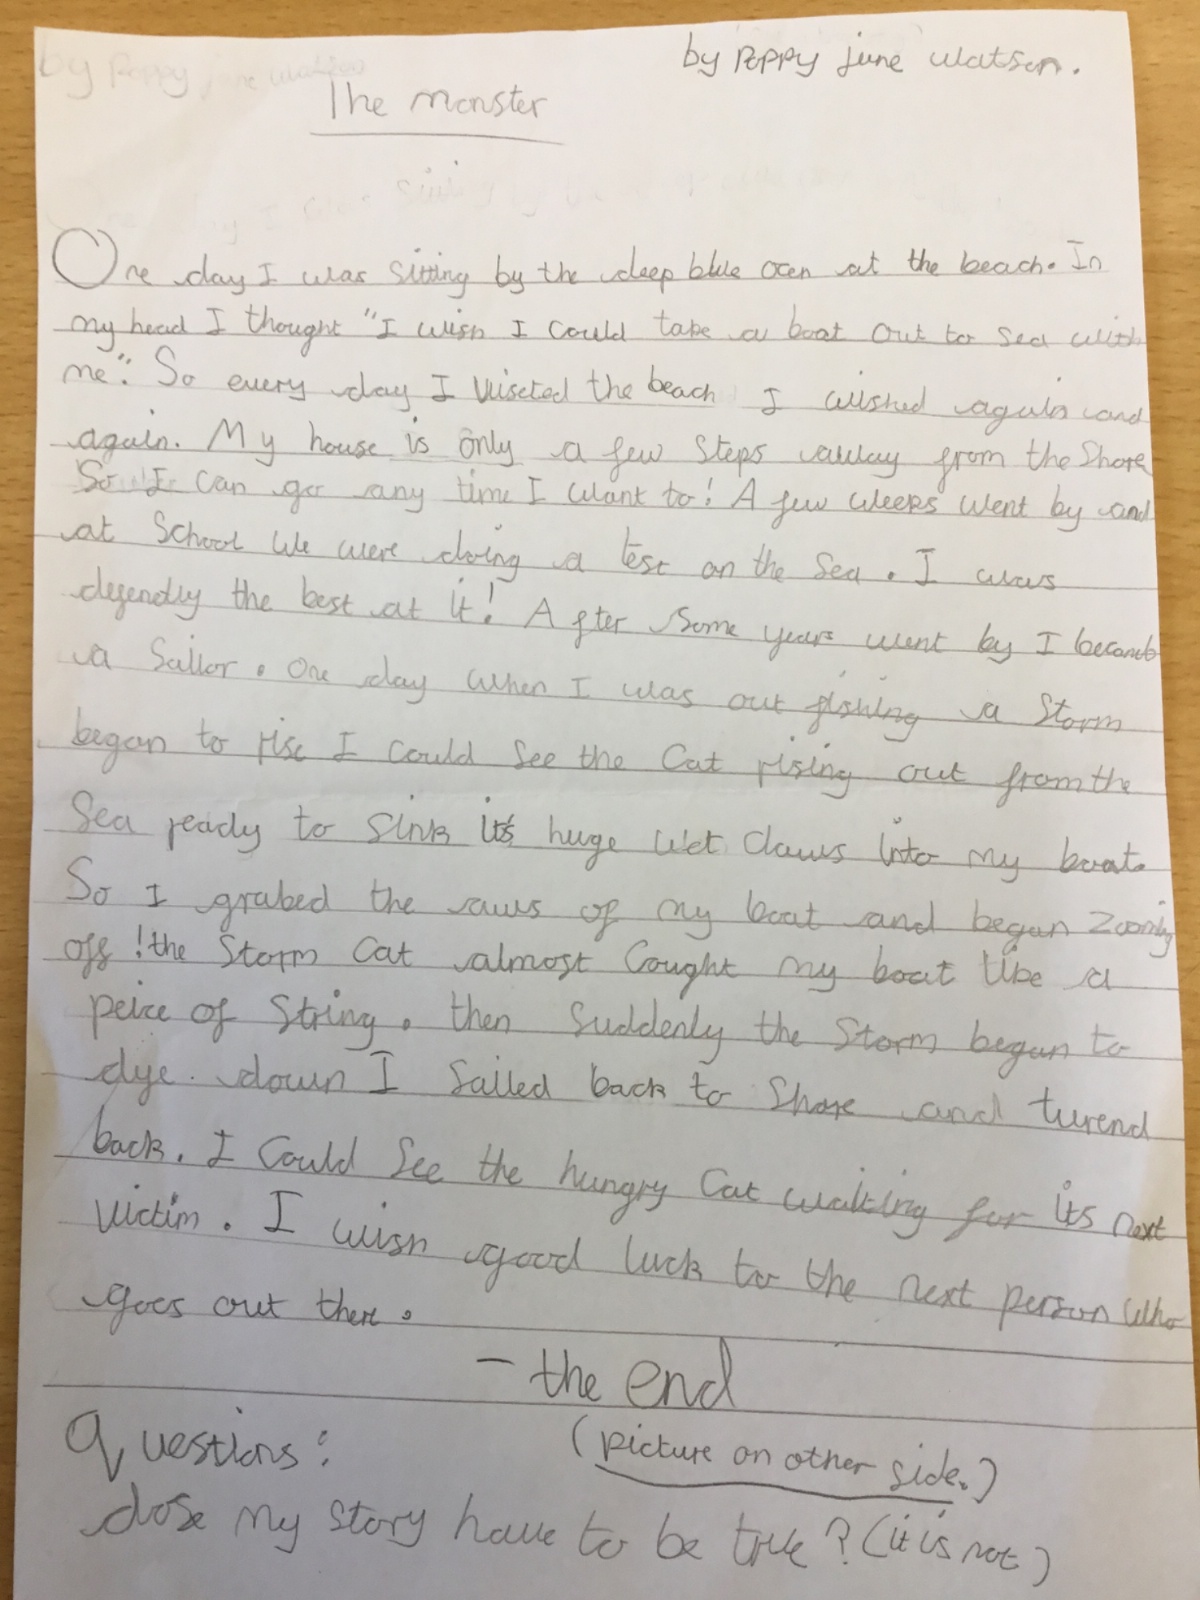 by Poppy june watson.
The monster
One day I was sitting by the deep blue ocen at the beach. In
my head I thought "I wish I could take a boat out to sea with
me". So every day I viseted the beach I wished again and
again. My house is only a few steps away from the shore
So I can go any time I want to! A few weeks went by and
at school we were doing a test on the sea. I was
degendly the best at it! After some years went by I became
a sailor. One day when I was out fishing a storm
began to rise I could see the cat rising out from the
sea ready to sink its huge wet claws into my boat.
So I grabed the saws of my boat and began zooming
off! the storm cat almost cought my boat like a
peice of string. then suddenly the storm began to
dye down I sailed back to shore and turend
back. I could see the hungry cat waiting for its next
victim. I wish good luck to the next person who
goes out there.
- the end
Questions: (picture on other side.)
dose my story have to be true? (it is not)